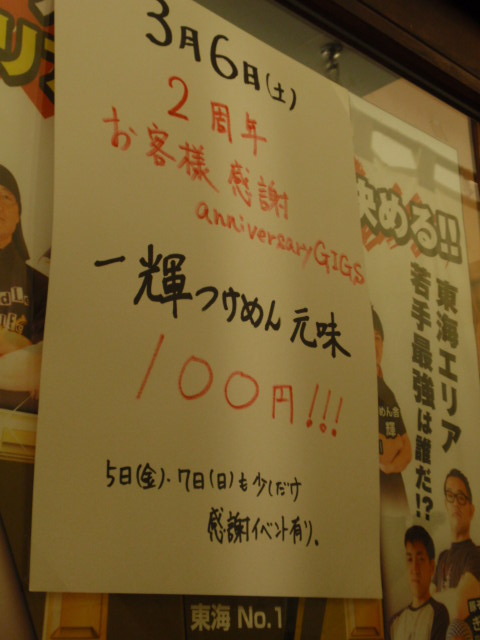 3月6日(土)
2周年
お客様感謝
anniversaryGIGS
一輝つけめん元味
100円!!!
5日(金)・7日(日)も少しだけ
感謝イベント有り。
決める!!
東海エリア
若手最強は誰だ!?
東海 No.1